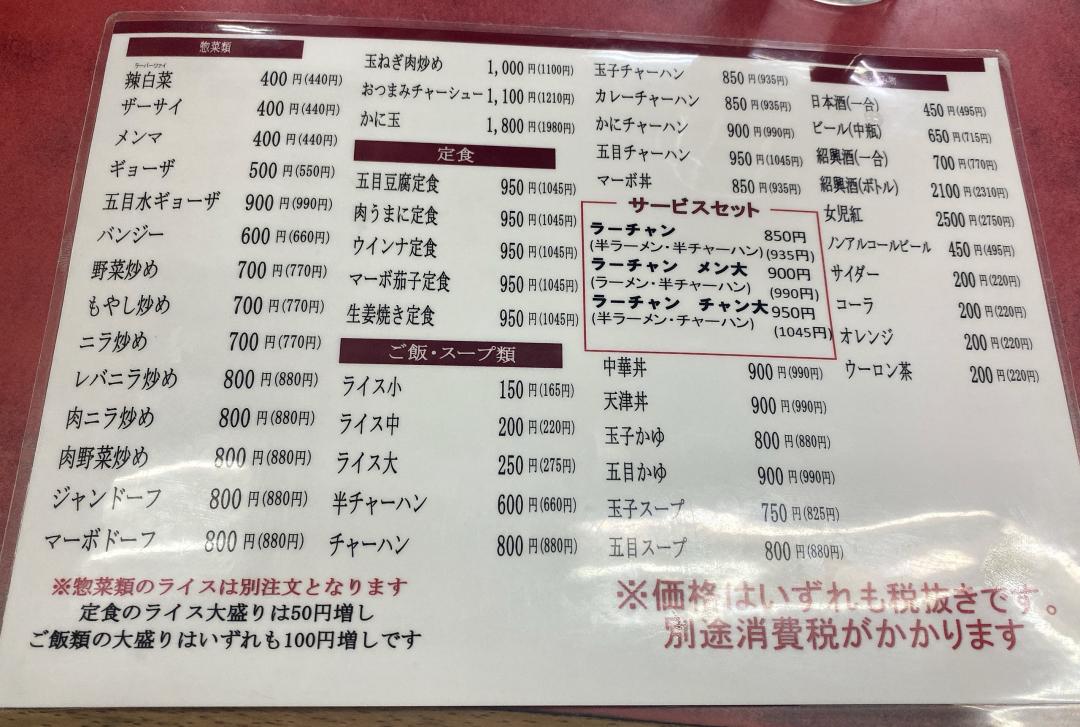 惣菜類
ラーパーツァイ
辣白菜 400円(440円)
ザーサイ 400円(440円)
メンマ 400円(440円)
ギョーザ 500円(550円)
五目水ギョーザ 900円(990円)
バンジー 600円(660円)
野菜炒め 700円(770円)
もやし炒め 700円(770円)
ニラ炒め 700円(770円)
レバニラ炒め 800円(880円)
肉ニラ炒め 800円(880円)
肉野菜炒め 800円(880円)
ジャンドーフ 800円(880円)
マーボドーフ 800円(880円)
玉ねぎ肉炒め 1,000円(1100円)
おつまみチャーシュー 1,100円(1210円)
かに玉 1,800円(1980円)
定食
五目豆腐定食 950円(1045円)
肉うまに定食 950円(1045円)
ウインナ定食 950円(1045円)
マーボ茄子定食 950円(1045円)
生姜焼き定食 950円(1045円)
ご飯・スープ類
ライス小 150円(165円)
ライス中 200円(220円)
ライス大 250円(275円)
半チャーハン 600円(660円)
チャーハン 800円(880円)
玉子チャーハン 850円(935円)
カレーチャーハン 850円(935円)
かにチャーハン 900円(990円)
五目チャーハン 950円(1045円)
マーボ丼 850円(935円)
サービスセット
ラーチャン 850円
(半ラーメン・半チャーハン) (935円)
ラーチャン メン大 900円
(ラーメン・半チャーハン) (990円)
ラーチャン チャン大 950円
(半ラーメン・チャーハン) (1045円)
中華丼 900円(990円)
天津丼 900円(990円)
玉子かゆ 800円(880円)
五目かゆ 900円(990円)
玉子スープ 750円(825円)
五目スープ 800円(880円)
日本酒(一合) 450円(495円)
ビール(中瓶) 650円(715円)
紹興酒(一合) 700円(770円)
紹興酒(ボトル) 2100円(2310円)
女児紅 2500円(2750円)
ノンアルコールビール 450円(495円)
サイダー 200円(220円)
コーラ 200円(220円)
オレンジ 200円(220円)
ウーロン茶 200円(220円)
※惣菜類のライスは別注文となります
定食のライス大盛りは50円増し
ご飯類の大盛りはいずれも100円増しです
※価格はいずれも税抜きです。
別途消費税がかかります